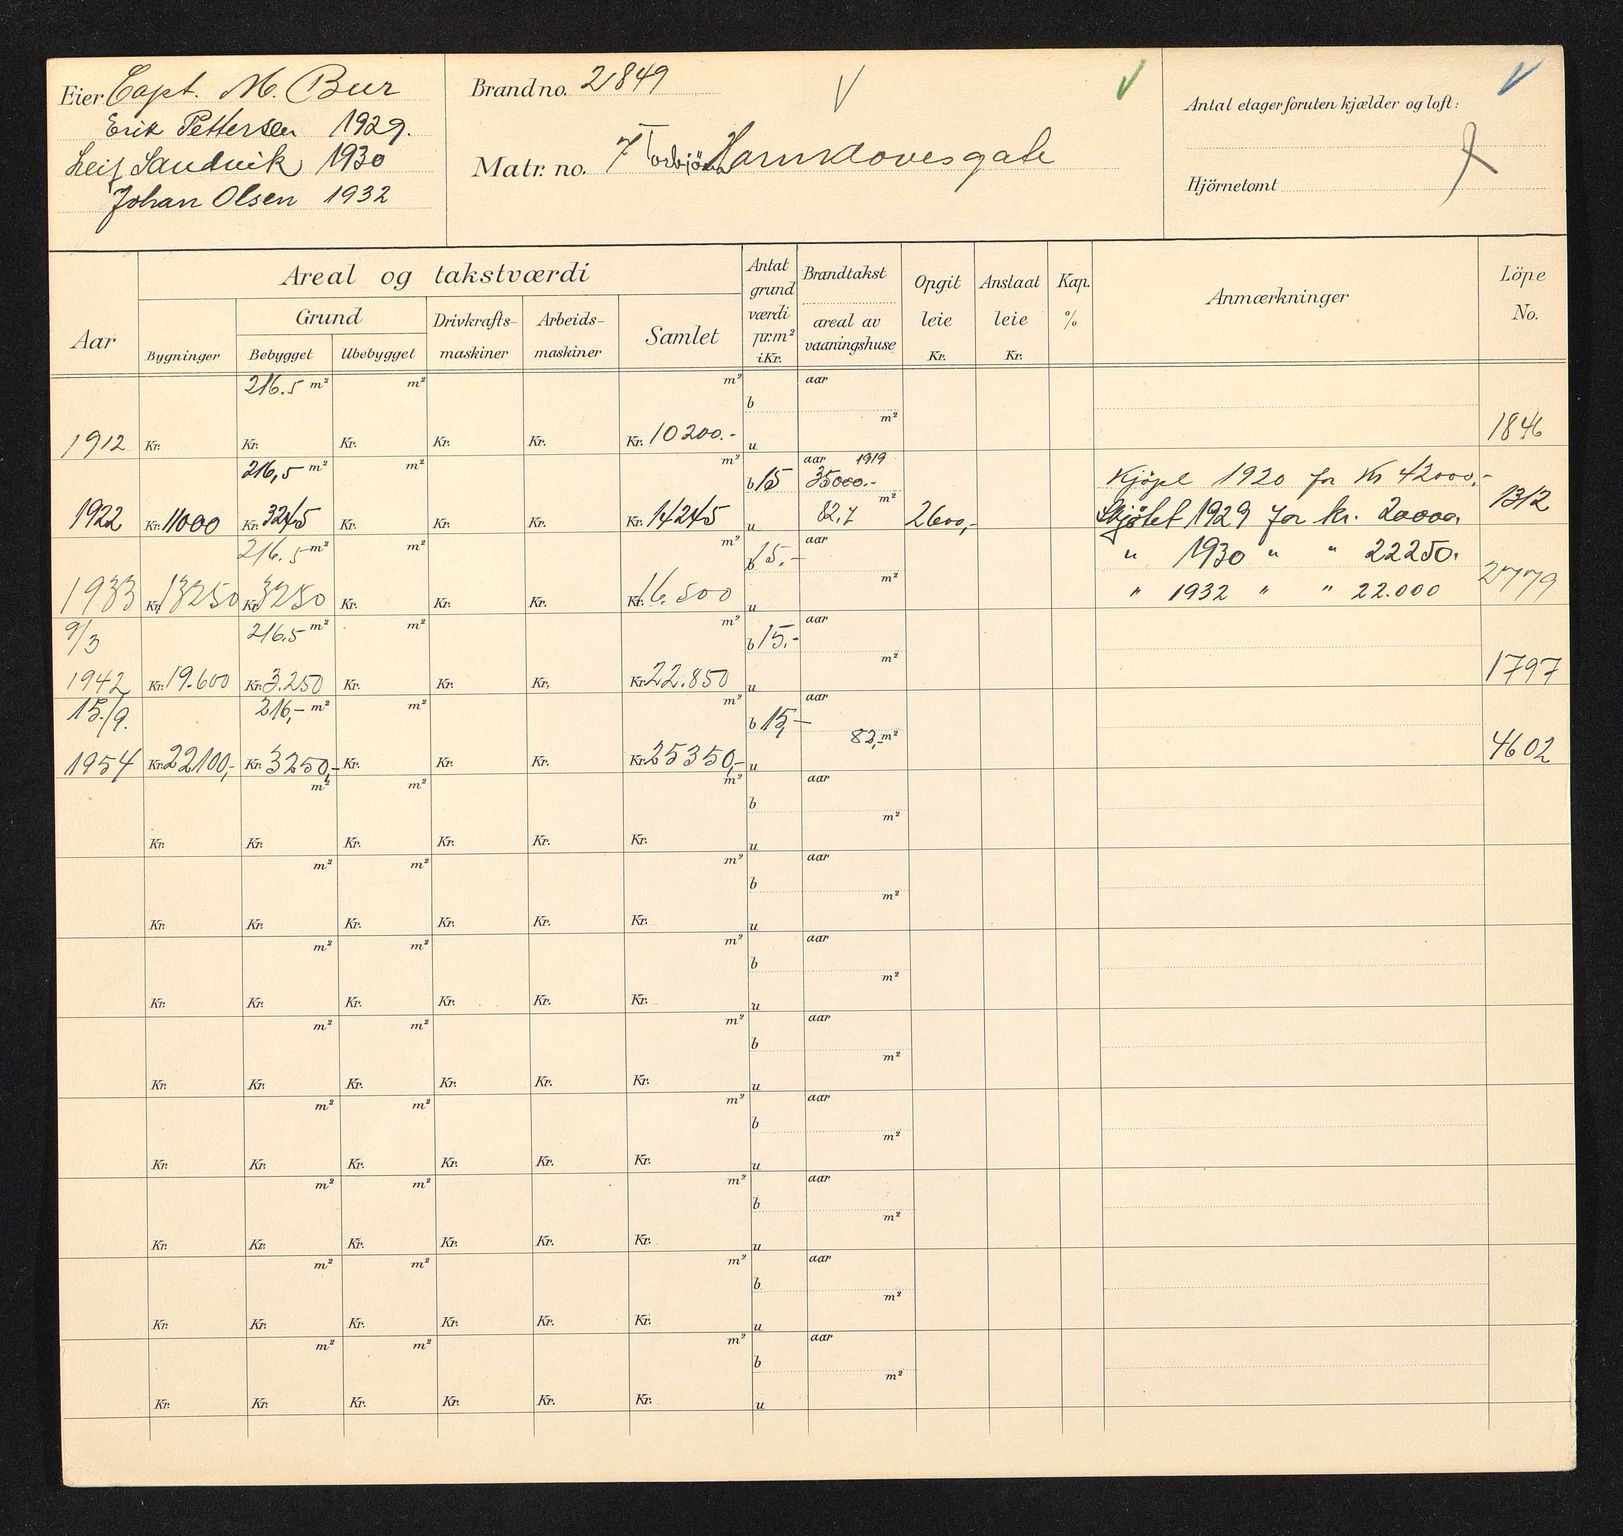 Eier Capt. M. Bur
Erik Pettersen 1929.
Leif Sandvik 1930
Johan Olsen 1932
Brand no. 2849
Matr. no. 7 Torbjörn Hornklovesgate
Antal etager foruten kjælder og loft:
Hjörnetomt
Aar
Areal og takstværdi
Bygninger
Grund
Bebygget Ubebygget
Drivkrafts-
maskiner
Arbeids-
maskiner
Samlet
Antat
grund
værdi
pr. m²
i Kr.
Brandtakst
areal av
vaaningshuse
Opgit
leie
Kr.
Anslaat
leie
Kr.
Kap.
%
Anmærkninger
Löpe
No.
216.5 m² m² m² b aar m²
1912 Kr. Kr. Kr. Kr. Kr. Kr. 10200.- u 1846
216,5 m² m² m² b 15 aar 1919 35000.- m² Kjöpt 1920 for Kr 42000,-
1922 Kr. 11000 Kr. 3245 Kr. Kr. Kr. Kr. 14245 u 82,7 2600,- Skjötet 1929 for kr. 20000. 1312
216.5 m² m² m² b 15.- aar m² " 1930 " " 22250.
1933 Kr. 13250 Kr. 3250 Kr. Kr. Kr. Kr. 16.500 u " 1932 " " 22.000 2779
9/3 216.5 m² m² m² b 15,- aar m²
1942 Kr. 19.600 Kr. 3.250 Kr. Kr. Kr. Kr. 22.850 u 1797
15./9. 216,- m² m² m² b 15,- aar 82,- m²
1954 Kr. 22100,- Kr. 3250,- Kr. Kr. Kr. Kr. 25350,- u 4602
m² m² m² b aar m²
Kr. Kr. Kr. Kr. Kr. Kr. u
m² m² m² b aar m²
Kr. Kr. Kr. Kr. Kr. Kr. u
m² m² m² b aar m²
Kr. Kr. Kr. Kr. Kr. Kr. u
m² m² m² b aar m²
Kr. Kr. Kr. Kr. Kr. Kr. u
m² m² m² b aar m²
Kr. Kr. Kr. Kr. Kr. Kr. u
m² m² m² b aar m²
Kr. Kr. Kr. Kr. Kr. Kr. u
m² m² m² b aar m²
Kr. Kr. Kr. Kr. Kr. Kr. u
m² m² m² b aar m²
Kr. Kr. Kr. Kr. Kr. Kr. u